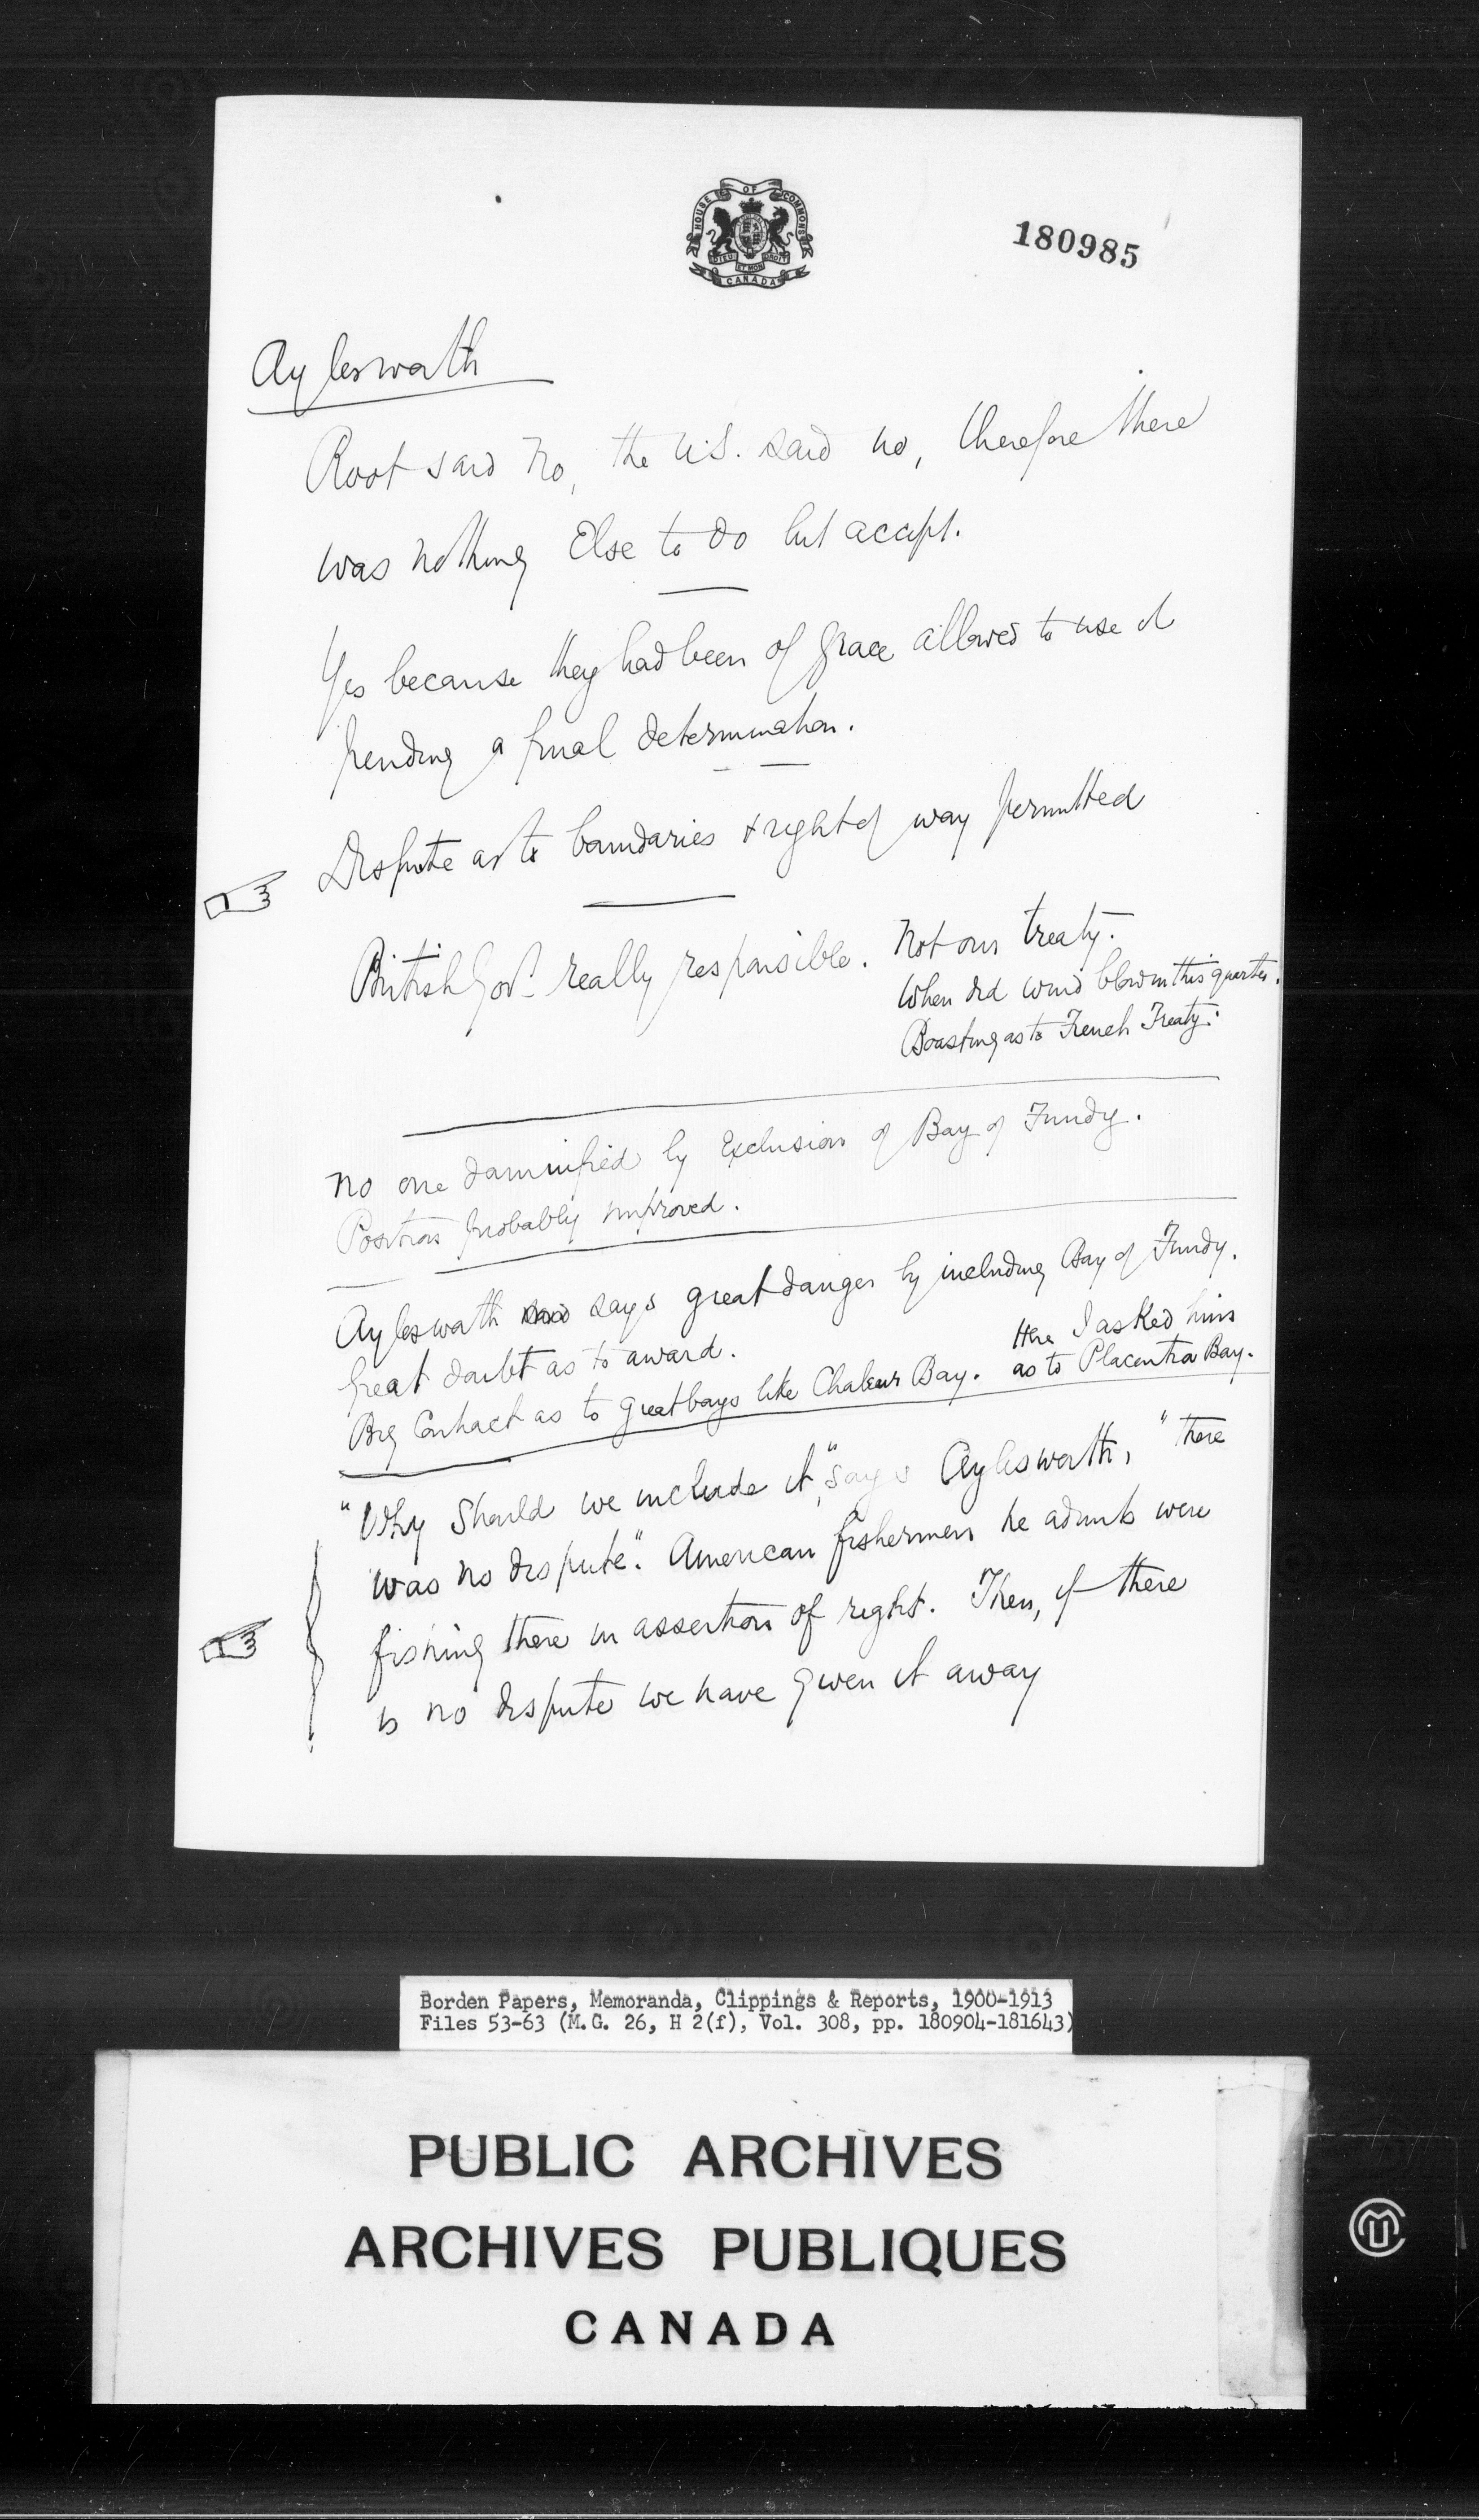 HOUSE OF COMMONS
DIEU ET MON DROIT
CANADA
180985
Aylesworth
Root said no, the U.S. said no, therefore there
was nothing Else to do but accept.
Yes because they had been of grace allowed to use it
pending a final determination.
Dispute as to boundaries & right of way permitted
British Govt really responsible. Not our treaty.
When did wind blow in this quarter.
Boasting as to French Treaty.
No one damnified by Exclusion of Bay of Fundy.
Position probably improved.
Aylesworth says great danger by including Bay of Fundy.
Great doubt as to award.
Big Contract as to great bays like Chaleur Bay. Here I asked him
as to Placentia Bay.
"Why should we include it," says Aylesworth, "there
was no dispute". American fishermen he admits were
fishing there in assertion of right. Then, if there
is no dispute we have given it away
Borden Papers, Memoranda, Clippings & Reports, 1900-1913
Files 53-63 (M.G. 26, H 2(f), Vol. 308, pp. 180904-181643)
PUBLIC ARCHIVES
ARCHIVES PUBLIQUES
CANADA